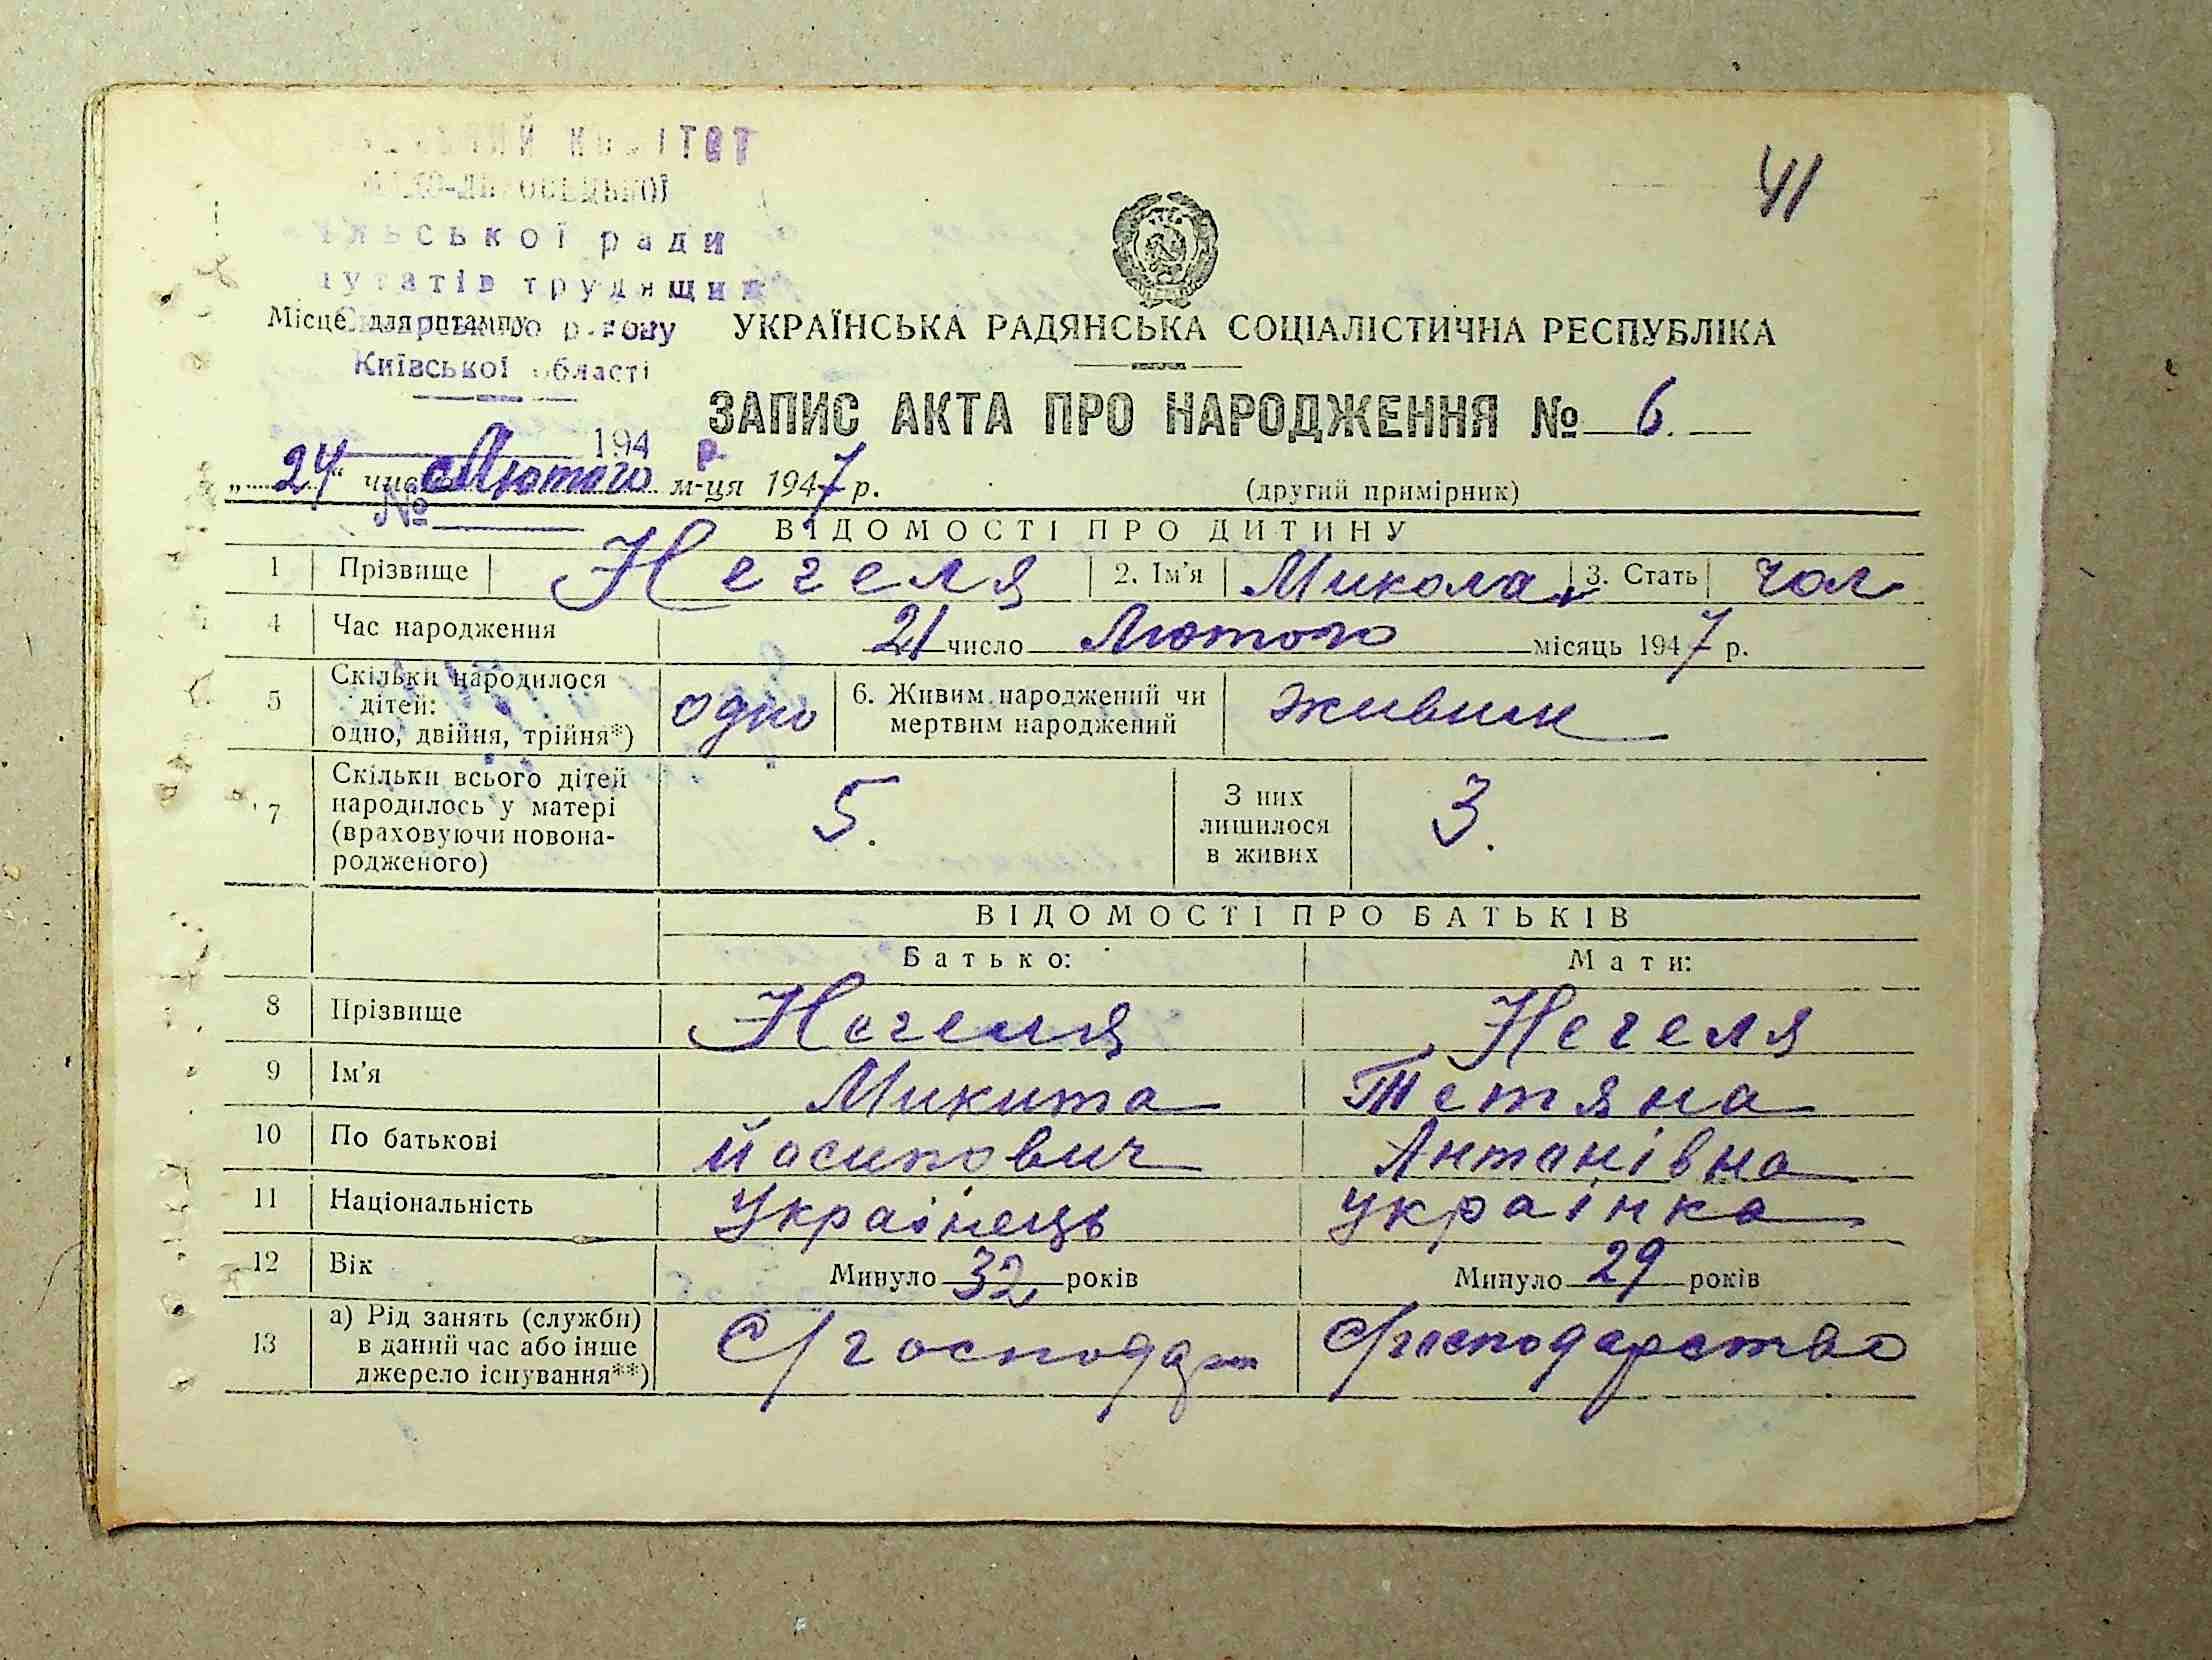 41
сільської ради
депутатів трудящих
Місце для штампу району
Київської області
УКРАЇНСЬКА РАДЯНСЬКА СОЦІАЛІСТИЧНА РЕСПУБЛІКА
ЗАПИС АКТА ПРО НАРОДЖЕННЯ № 6.
194 р.
„24“ числа Лютого м-ця 1947 р.
(другий примірник)
№
ВІДОМОСТІ ПРО ДИТИНУ
1 Прізвище Негеля 2. Ім'я Микола 3. Стать чол
4 Час народження 21 число Лютого місяць 1947 р.
5 Скільки народилося дітей: одно, двійня, трійня*) одно 6. Живим народжений чи мертвим народжений живим
7 Скільки всього дітей народилось у матері (враховуючи новона-родженого) 5. З них лишилося в живих 3.
ВІДОМОСТІ ПРО БАТЬКІВ
Батько: Мати:
8 Прізвище Негеля Негеля
9 Ім'я Микита Тетяна
10 По батькові Йосипович Антонівна
11 Національність Українець Українка
12 Вік Минуло 32 років Минуло 29 років
13 а) Рід занять (служби) в даний час або інше джерело існування**) С/господар С/господарство